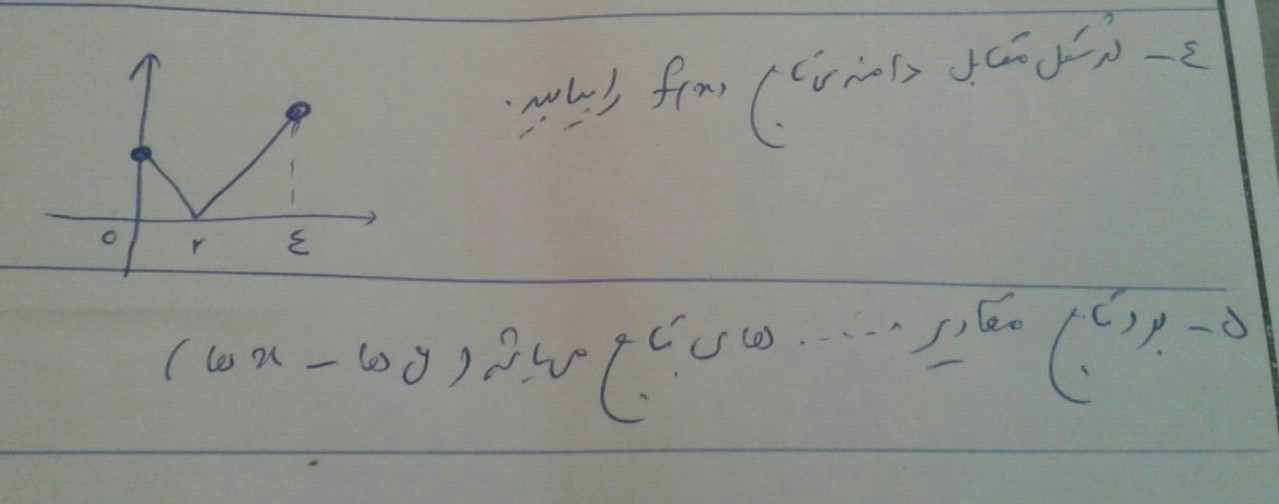 ٤- در شکل مقابل دامنه ی تابع f(x) را بیابید.
۰ ۲ ٤
۵- برد تابع مقادیر ...... های تابع میباشد (yها - xها)